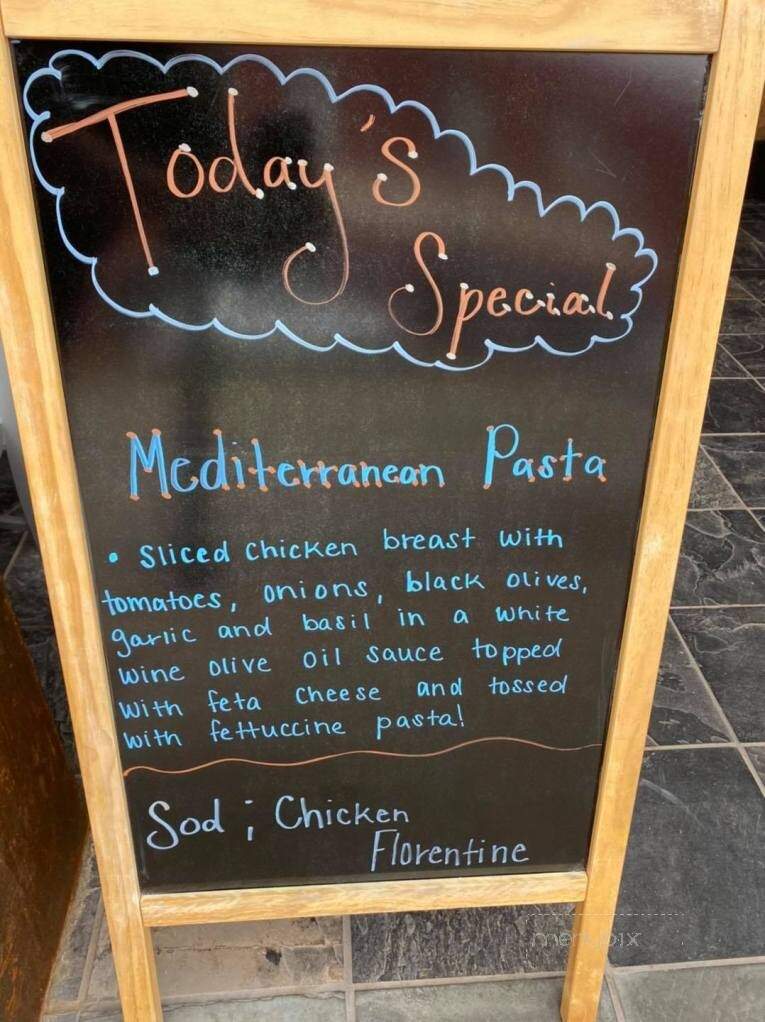 Today's
Special
Mediterranean Pasta
• Sliced chicken breast with
tomatoes, onions, black olives,
garlic and basil in a white
wine olive oil sauce topped
with feta cheese and tossed
with fettuccine pasta!
Sod ; Chicken
Florentine
menupix